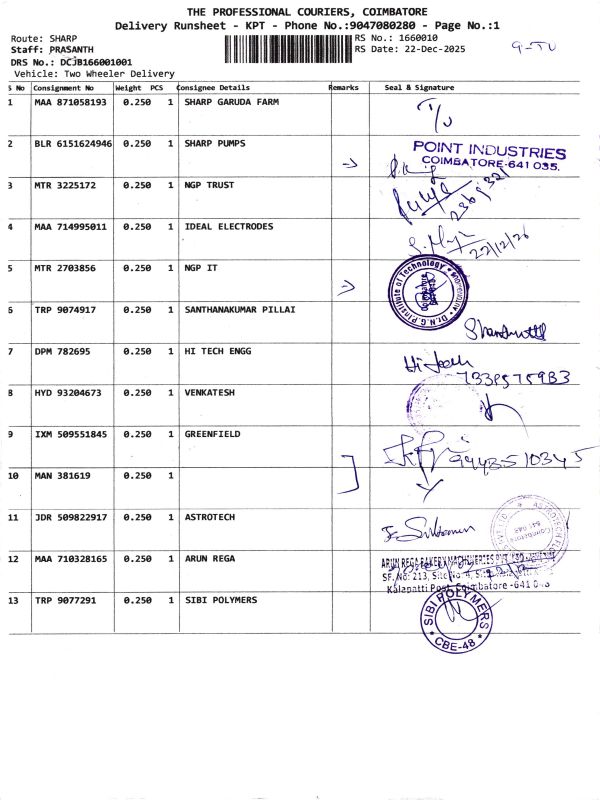 THE PROFESSIONAL COURIERS, COIMBATORE
Delivery Runsheet - KPT - Phone No.:9047080280 - Page No.:1
Route: SHARP
RS No.: 1660010
Staff: PRASANTH
RS Date: 22-Dec-2025
9-TU
DRS No.: DCJB166001001
Vehicle: Two Wheeler Delivery
S No Consignment No Weight PCS Consignee Details Remarks Seal & Signature
1 MAA 871058193 0.250 1 SHARP GARUDA FARM T/U
2 BLR 6151624946 0.250 1 SHARP PUMPS
POINT INDUSTRIES
COIMBATORE-641 035.
3 MTR 3225172 0.250 1 NGP TRUST
4 MAA 714995011 0.250 1 IDEAL ELECTRODES
22/12/26
5 MTR 2703856 0.250 1 NGP IT
Dr.N.G.P.Institute of Technology
6 TRP 9074917 0.250 1 SANTHANAKUMAR PILLAI
7 DPM 782695 0.250 1 HI TECH ENGG
Hi Tech
8 HYD 93204673 0.250 1 VENKATESH
9 IXM 509551845 0.250 1 GREENFIELD
9943510345
10 MAN 381619 0.250 1
11 JDR 509822917 0.250 1 ASTROTECH
12 MAA 710328165 0.250 1 ARUN REGA
ARUN REGA BAKERY MACHINERIES PVT
SF. No: 213, Site No: 4,
Kalapatti Post, Coimbatore -641 048
13 TRP 9077291 0.250 1 SIBI POLYMERS
SIBI POLYMERS
CBE-48